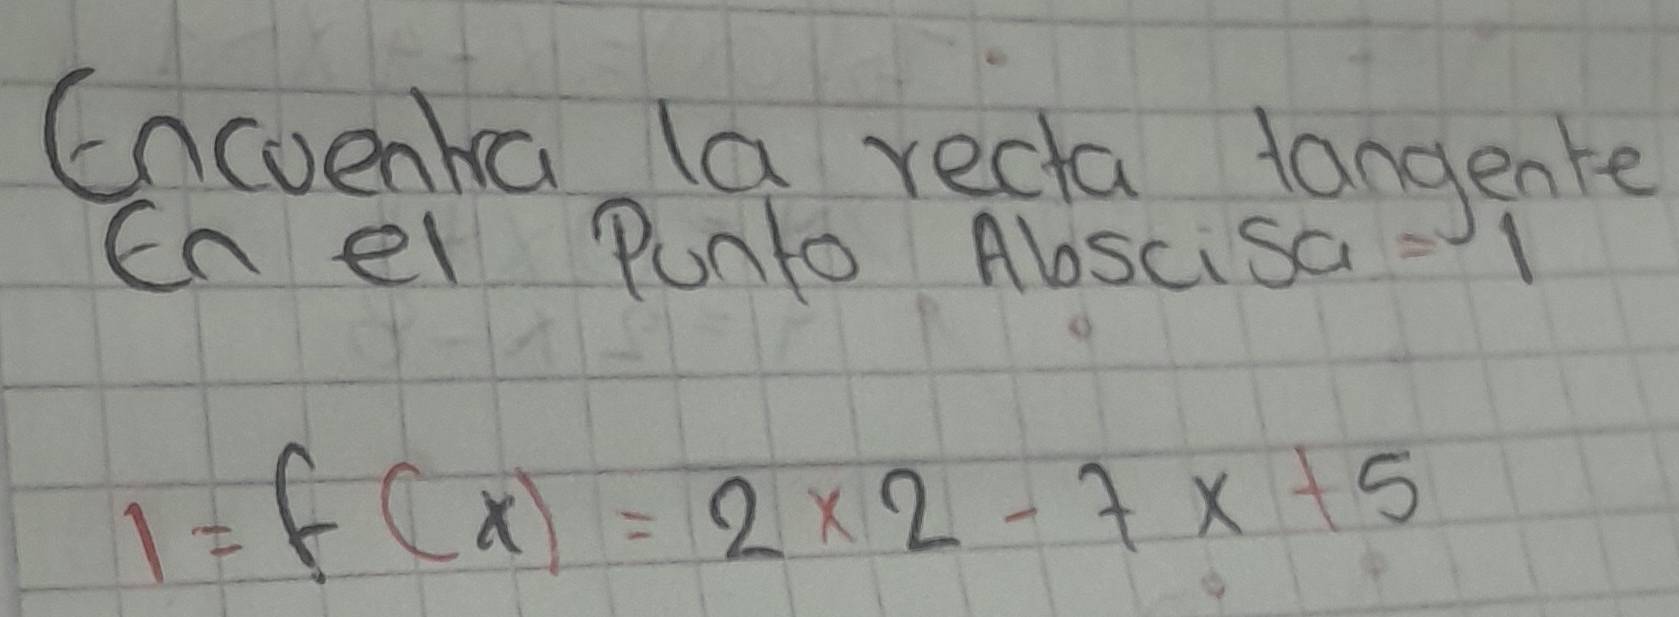 Encuentra la recta tangente
En el Punto Abscisa = 1
1 = f (x) = 2 x 2 - 7 x + 5